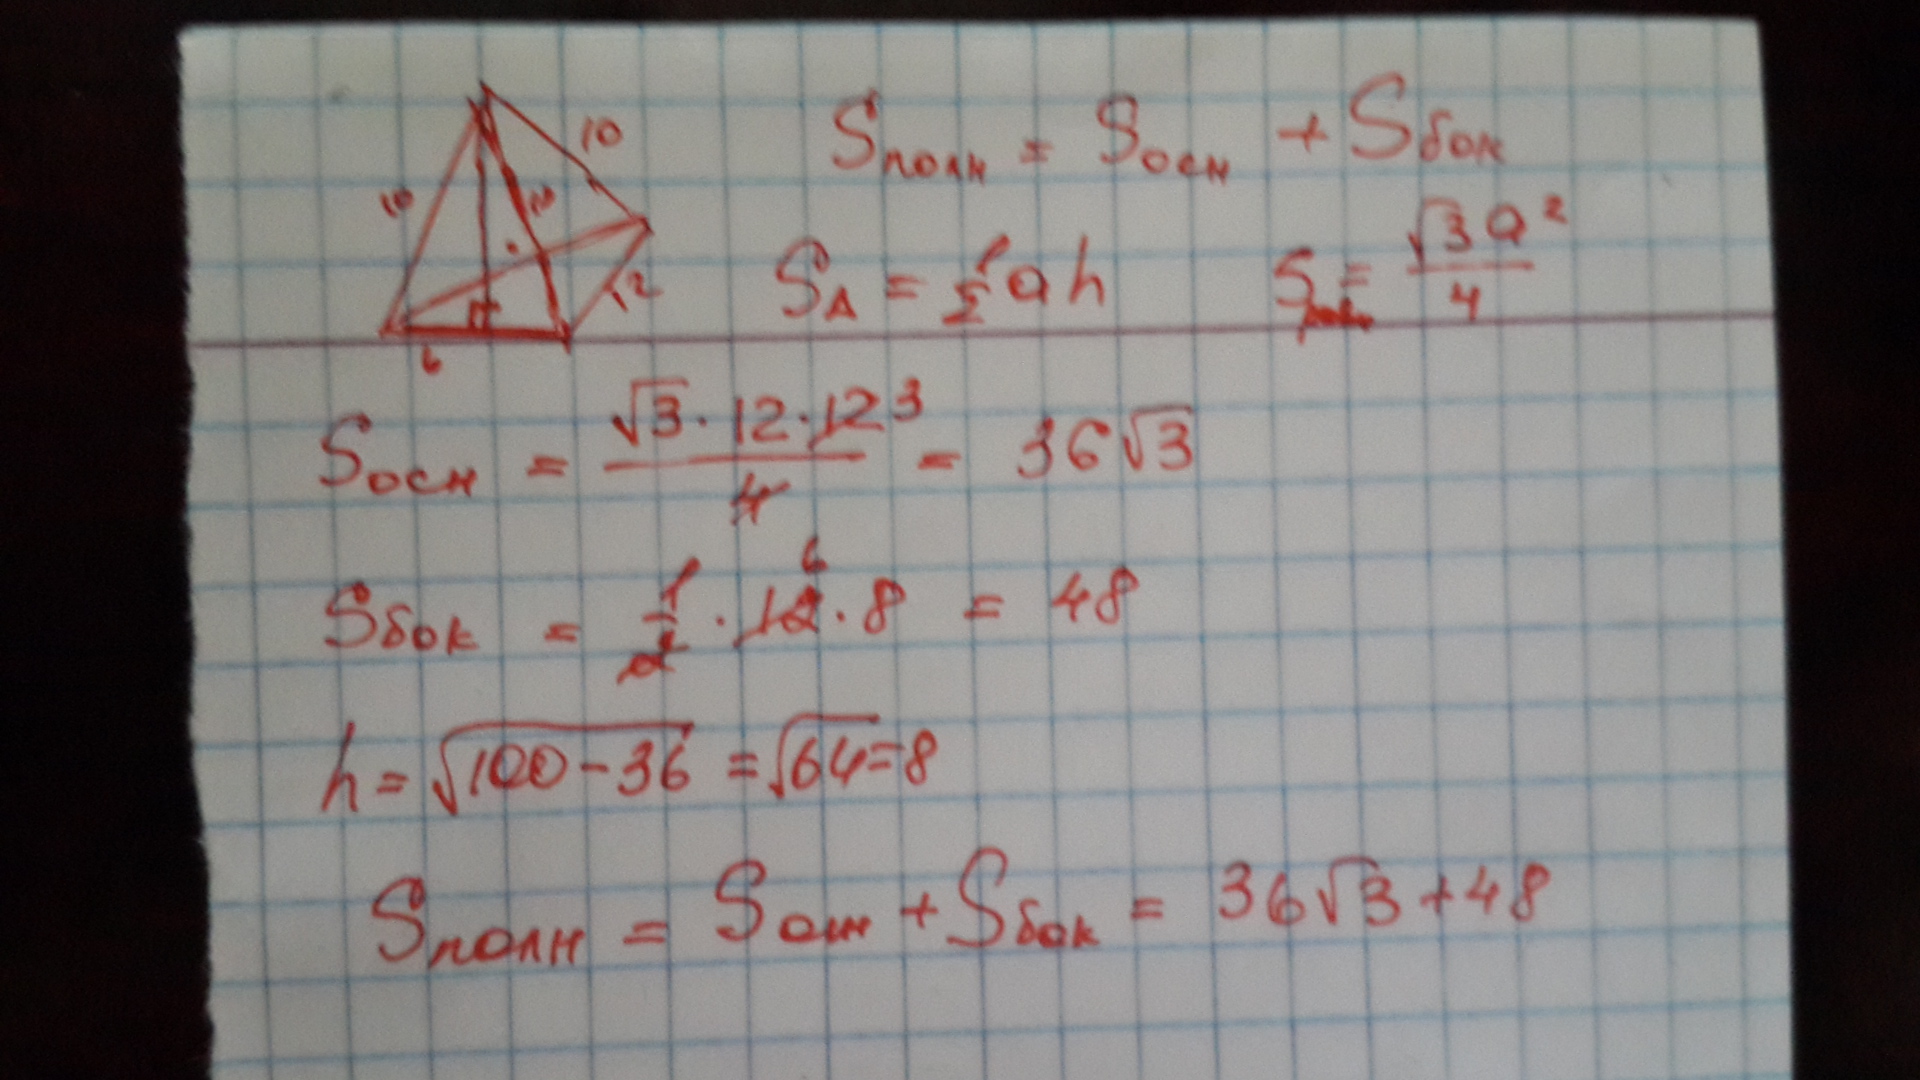 10
10
10
12
6
Sполн = Sосн + Sбок
S△ = 1/2 a h
S = √3 a² / 4
Sосн = √3 · 12 · 12 3 / 4 = 36√3
Sбок = 1/2 · 12 6 · 8 = 48
h = √100 - 36 = √64 = 8
Sполн = Sосн + Sбок = 36√3 + 48